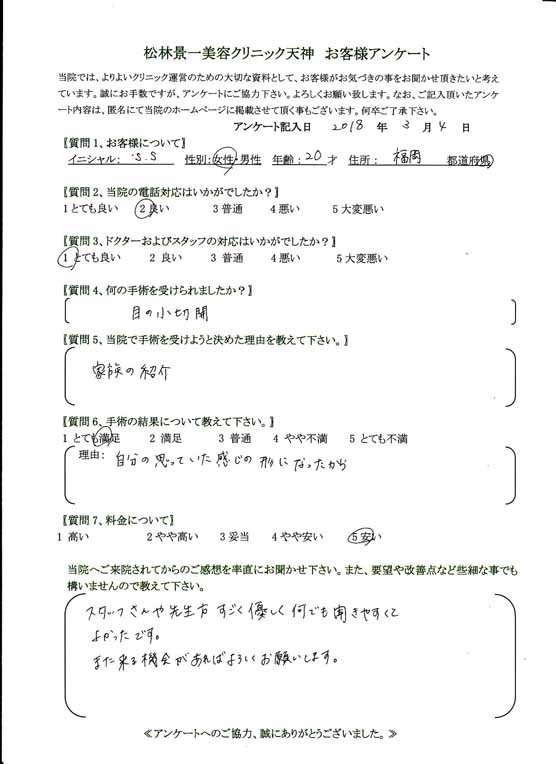 松林景一美容クリニック天神 お客様アンケート
当院では、よりよいクリニック運営のための大切な資料として、お客様がお気づきの事をお聞かせ頂きたいと考え
ています。誠にお手数ですが、アンケートにご協力下さい。よろしくお願い致します。なお、ご記入頂いたアンケ
ート内容は、匿名にて当院のホームページに掲載させて頂く事もございます。何卒ご了承下さい。
アンケート記入日 2018 年 3 月 4 日
【質問1、お客様について】
イニシャル: S.S 性別:女性・男性 年齢:20才 住所: 福岡 都道府県
【質問2、当院の電話対応はいかがでしたか?】
1とても良い 2良い 3普通 4悪い 5大変悪い
【質問3、ドクターおよびスタッフの対応はいかがでしたか?】
1とても良い 2良い 3普通 4悪い 5大変悪い
【質問4、何の手術を受けられましたか?】
目の小切開
【質問5、当院で手術を受けようと決めた理由を教えて下さい。】
家族の紹介
【質問6、手術の結果について教えて下さい。】
1とても満足 2満足 3普通 4やや不満 5とても不満
理由: 自分の思っていた感じの形になったから
【質問7、料金について】
1高い 2やや高い 3妥当 4やや安い 5安い
当院へご来院されてからのご感想を率直にお聞かせ下さい。また、要望や改善点など些細な事でも
構いませんので教えて下さい。
スタッフさんや先生方すごく優しく何でも聞きやすくて
よかったです。
また来る機会があればよろしくお願いします。
≪アンケートへのご協力、誠にありがとうございました。≫